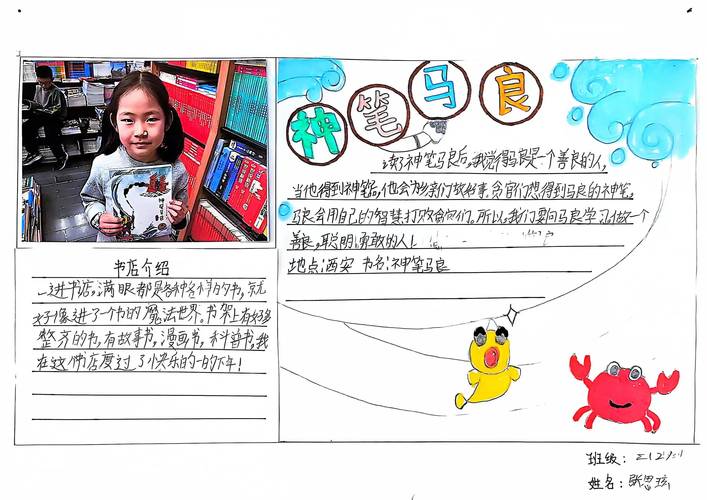 神笔马良
读了神笔马良后,我觉得马良是一个善良的人,
当他得到神笔后,他会为乡亲们做好事,贪官们想得到马良的神笔,
马良会用自己的智慧打败贪官们。所以,我们要向马良学习,做一个
善良,聪明,勇敢的人!
地点:西安 书名:神笔马良
书店介绍
一进书店,满眼都是各种各样的书,就
好像进了一个书的魔法世界。书架上有好多
整齐的书,有故事书,漫画书,科普书,我
在这个书店度过了个快乐的一的下午!
班级:
姓名:张思琀